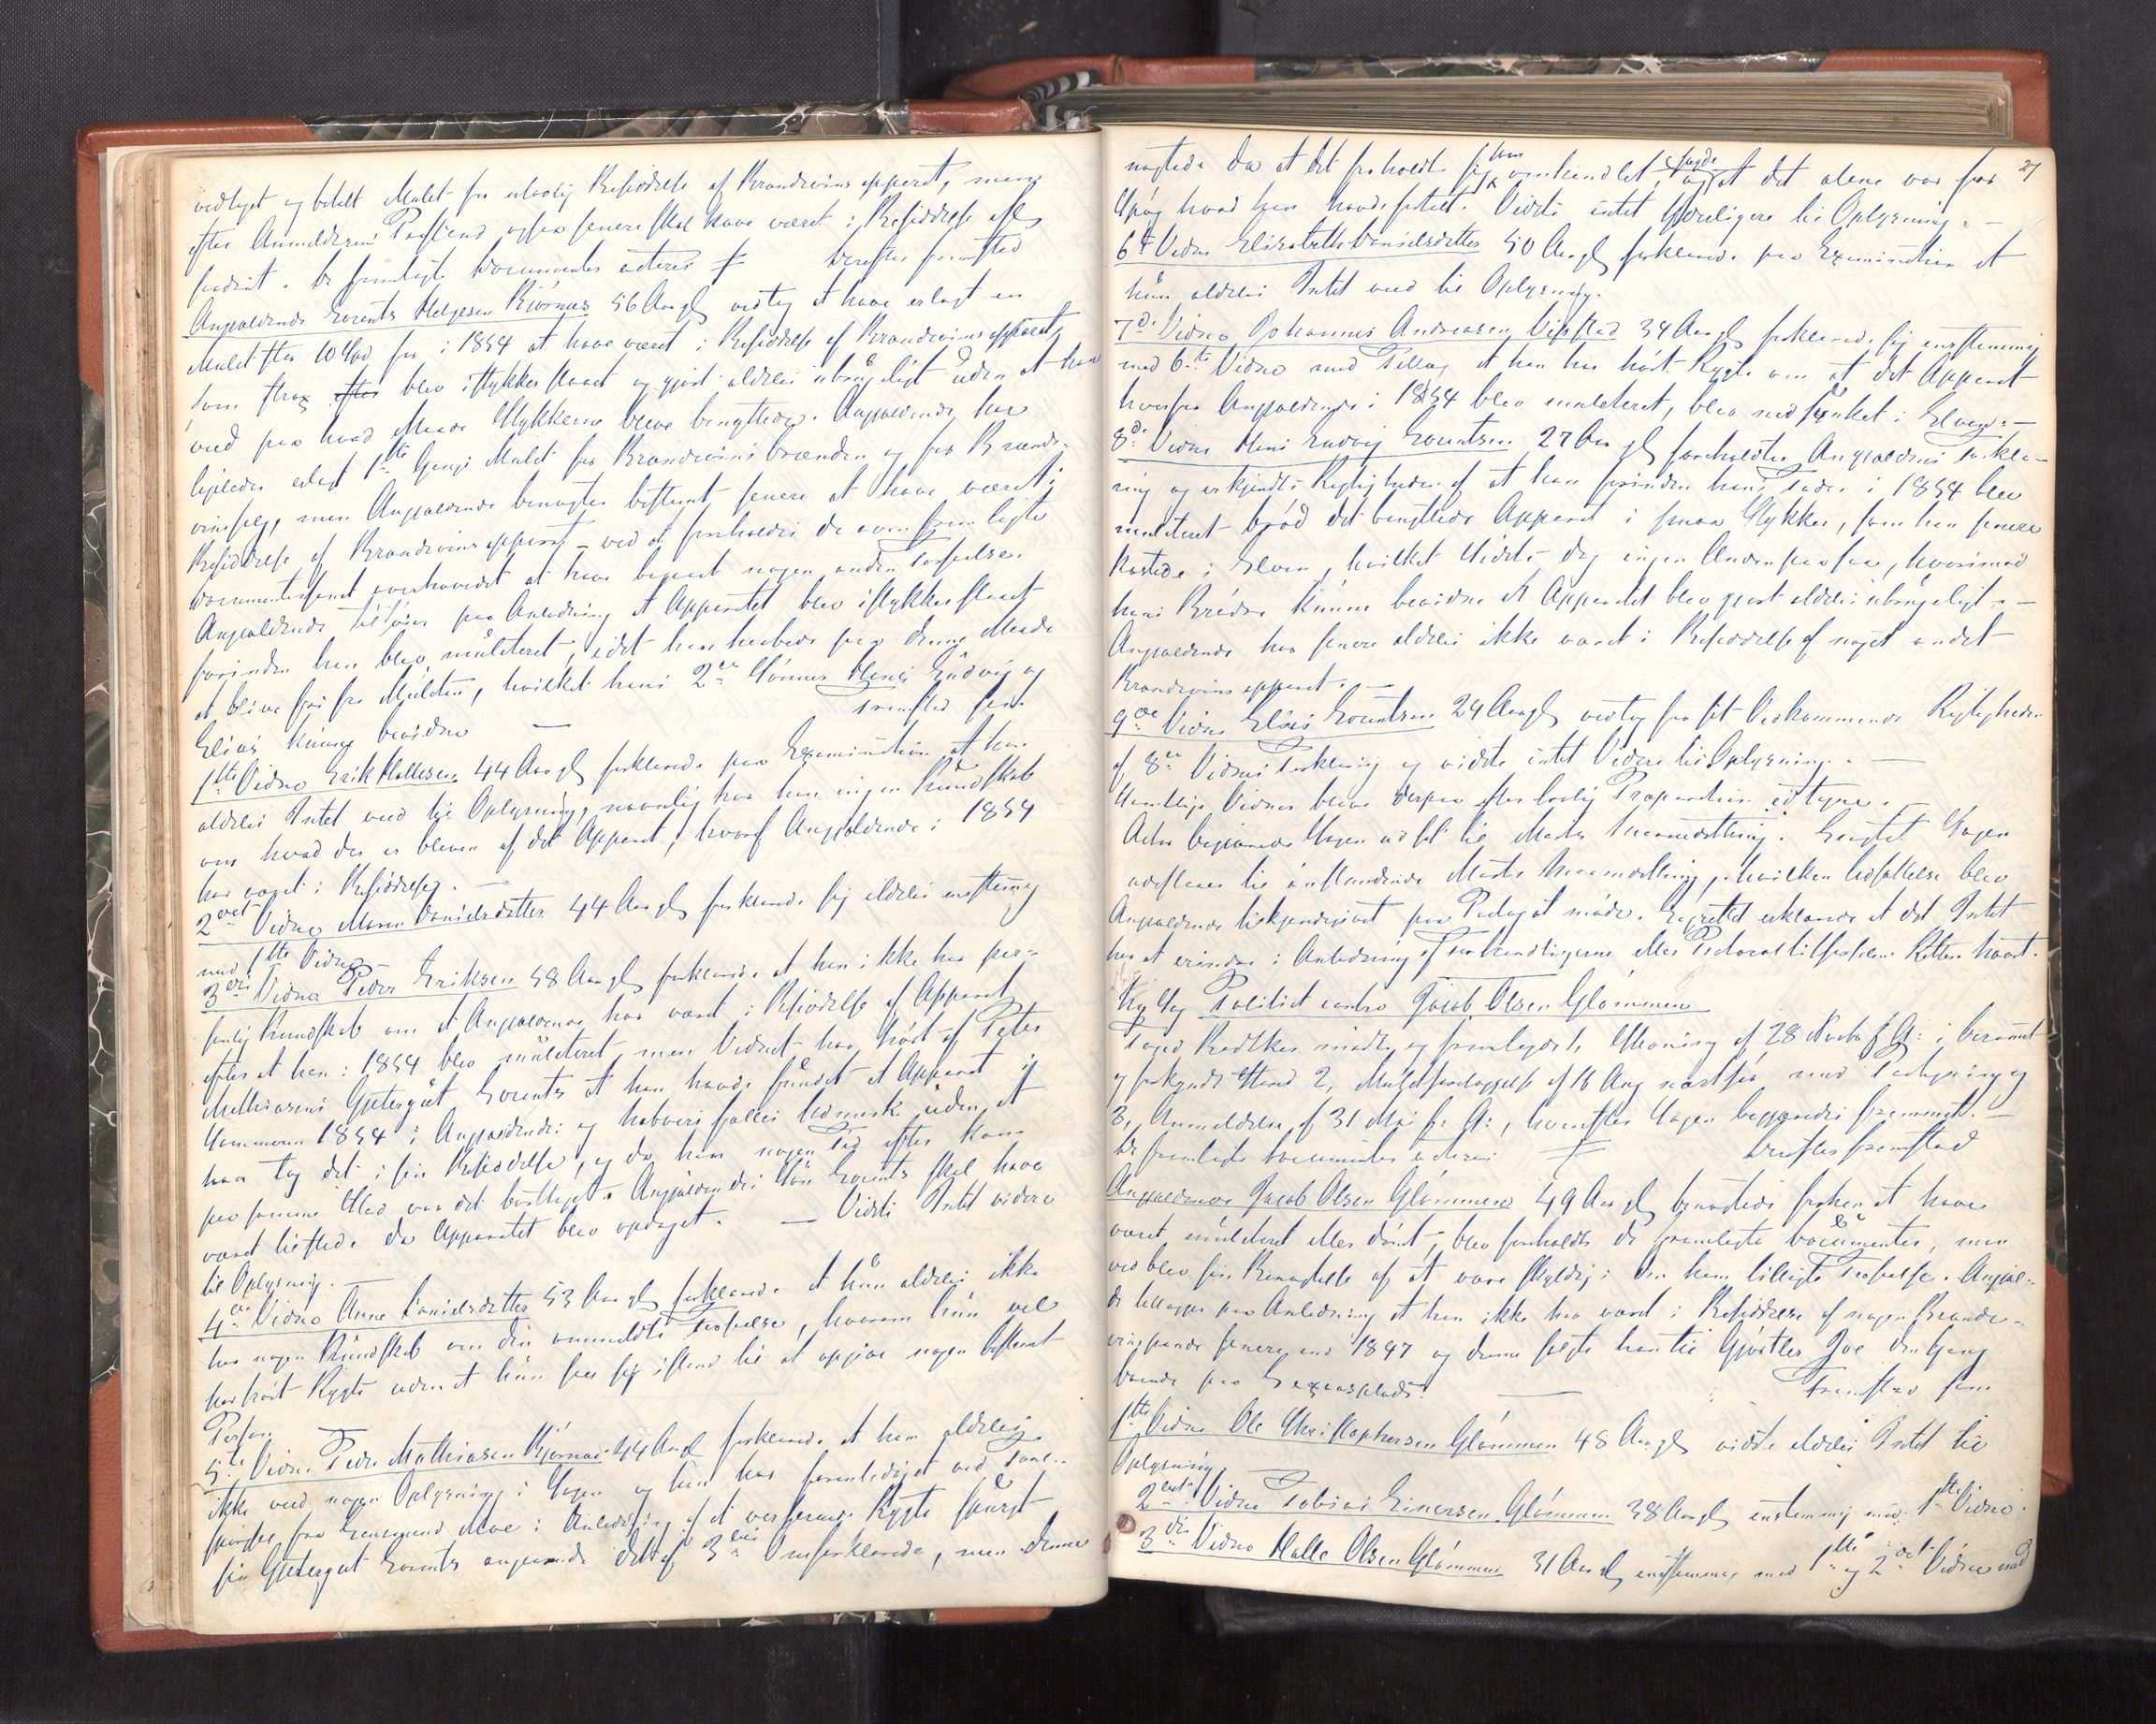 vedtaget og betalt Mulct for ulovlig Besiddelse af Brændevinsapparat, men
efter Anmelderens Paastand ogsaa senere skal have været i Besiddelse af
saadant. De fremlagte Documenter acteres ⨍ Derefter fremstod
Angjældende Lorents Helgesen Bjørnaas 56 Aar gl vedtog at have erlagt en
Mulct stor 10 Spd for i 1854 at have været i Besiddelse af Brændevinsapparat,
som strax blev istykkerslaaet og gjort aldeles ubrugeligt uden at han
veed paa hvad Maade Stykkerne bleve benyttede. Angjældende har
ligeledes erlagt 1ste Gangs Mulct for Brændevinsbrænden og for Brænde-
vinssalg, men Angjældende benægter bestemt senere at have været i
Besiddelse af Brændevinsapparat – ved at foreholdes de ovenfremlagte
Documenter samt overhovedet at have begaaet nogen anden Forseelse.
Angjældende tilføier paa Anledning at Apparatet blev istykkerslaaet
forinden han blev mulcteret, idet han haabede paa denne Maade
at blive fri for Mulcten, hvilket hans 2de Sønner Hans Ludvig og
Elias kunne bevidne — Fremstod som
1ste Vidne Erik Hallesen 44 Aar gl forklarede paa Examination at han
aldeles Intet veed til Oplysning, navnlig har han ingen Kundskab
om hvad der er bleven af det Apparat, hvoraf Angjældende i 1854
har været i Besiddelse. —
2det Vidne Maren Danielsdatter 44 Aar gl forklarede sig aldeles enstemmig
med 1ste Vidne. —
3die Vidne Peder Eriksen 58 Aar gl forklarede at han ikke har per-
sonlig Kundskab om at Angjældende har været i Besiddelse af Apparat
efter at han i 1854 blev mulcteret, men Vidnet har hørt af Peter
Mathiasens Gjetergut Lorents at han havde fundet et Apparat i
Sommeren 1854 i Angjældendes og uden at
han tog det i sin Besiddelse, og da han nogen Tid efter kom
paa samme Sted var det borttaget. Angjældendes Søn Lorents skal have
været tilstede da Apparatet blev opdaget. — Vidste Intet videre
til Oplysning. —
4de Vidne Anne Danielsdatter 53 Aar gl forklarede at hun aldeles ikke
har nogen Kundskab om den anmeldte Forseelse, hvorom hun vel
har hørt Rygte uden at hun ser sig istand til at opgive nogen bestemt
Person.
5te Vidne Peder Mathiasen Bjørnaas 44 Aar gl forklarede at han aldeles
ikke veed nogen Oplysning i Sagen og han har foranlediget ved Fore-
spørgsel fra Lensmand Moe i Anledning af et verserende Rygte spurgt
sin Gjetergut Lorents angaaende det af 3die Vidne forklarede, men denne
27
nægtede da at det forholdt sig som omhandlet, sagde at det alene var for
Spøg hvad han havde fortalt. Vidste intet Yderligere til Oplysning. —
6te Vidne Elisabeth Danielsdatter 50 Aar gl forklarede paa Examination at
hun aldeles Intet veed til Oplysning.
7de Vidne Johannes Andreasen Vipstad 34 Aar gl forklarede sig enstemmig
med 6te Vidne med Tillæg at han har hørt Rygte om at det Apparat
hvorfor Angjældende i 1854 blev mulcteret, blev nedsænket i Elven. —
8de Vidne Hans Ludvig Lorentsen 27 Aar gl foreholdtes Angjældendes Forkla-
ring og erkjendte Rigtigheden af at han forinden hans Fader i 1854 blev
mulcteret brød det benyttede Apparat i smaa Stykker, som han senere
kastede i Elven, hvilket Sidste dog ingen Anden saa paa, hvorimod
hans Brødre kunne bevidne at Apparatet blev gjort aldeles ubrugeligt. —
Angjældende har senere aldeles ikke været i Besiddelse af noget andet
Brændevinsapparat. —
9de Vidne Elias Lorentsen 24 Aar gl vedtog for sit Vedkommende Rigtigheden
af 8de Vidnes Forklaring og vidste intet Videre til Oplysning. —
Samtlige Vidner bleve derpaa efter lovlig Præparation edtagne. —
Actor begjærede Sagen udsat til Meddomsretten. Eragtet Sagen
udsættes til anstundende hvilken Udsættelse blev
Angjældende tilkjendegivet paa Paalæg at møde. Erklærede at det Intet
har at erindre i Anledning af Forhandlingerne eller Protocoltilførselen. Retten hævet.
Politiet contra Jacob Olsen Glømmen
Foged Bredtker mødte og fremlagde 1, Stævning af 28 Novbr f. A. i berammet
og forkyndt Stand 2, Mulctforelæggelse af 16 Aug næstfør med Paategning og
3, Anmeldelse af 31 Mai f. A., hvorefter Sagen begjæredes fremmet. —
De fremlagte Documenter acteres ⨍ Derefter fremstod
Angjældende Jacob Olsen Glømmen 49 Aar gl benægtede forhen at have
været mulcteret eller dømt, blev foreholdt de fremlagte Documenter, men
vedblev sin Benægtelse af at være skyldig i den ham tillagte Forseelse. Angjæl-
de tillægger paa Anledning at han ikke har været i Besiddelse af nogen Brænde-
vinspande senere end 1847 og denne solgte han til Gjørtler Joe den Gang
boende paa . — Fremstod som
1ste Vidne Ole Christophersen Glømmen 48 Aar gl vidste aldeles Intet til
Oplysning.
2det Vidne Tobias Einersen Glømmen 38 Aar gl enstemmig med 1ste Vidne.
3die Vidne Halle Olsen Glømmen 31 Aar gl enstemmig med 1ste og 2det Vidne med